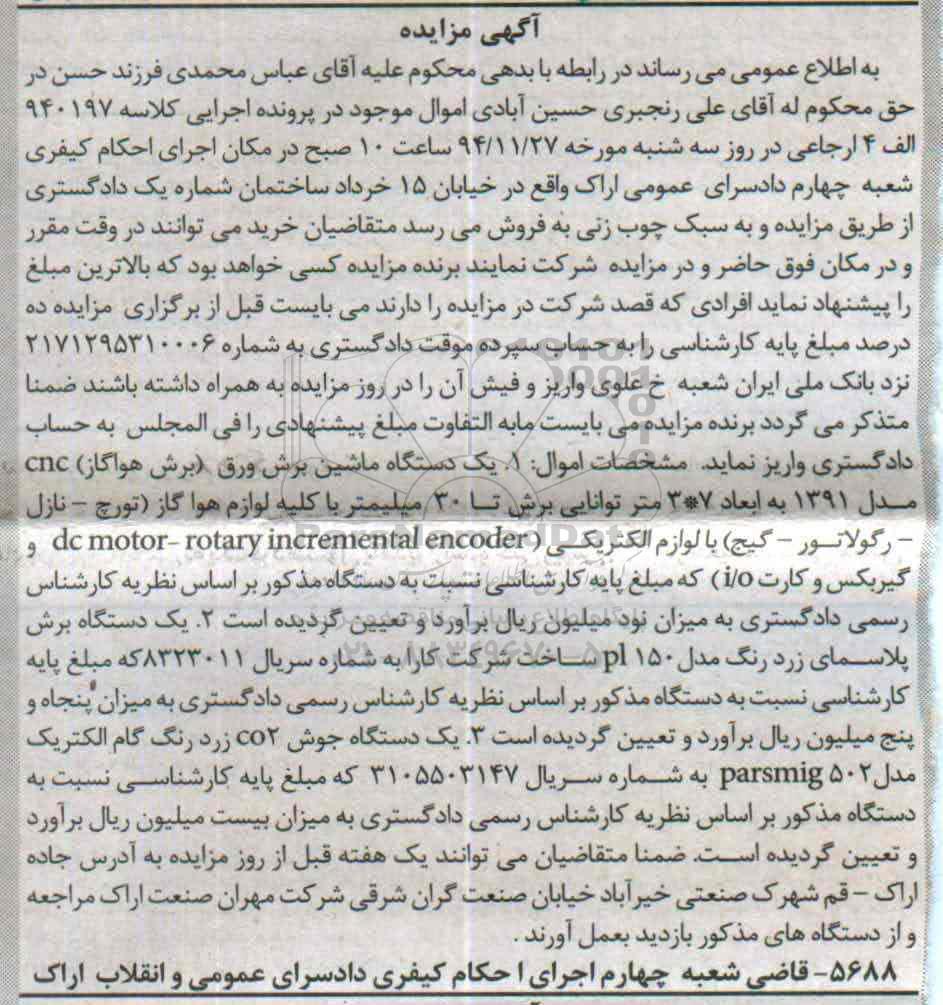 آگهی مزایده
به اطلاع عمومی می رساند در رابطه با بدهی محکوم علیه آقای عباس محمدی فرزند حسن در
حق محکوم له آقای علی رنجبری حسین آبادی اموال موجود در پرونده اجرایی کلاسه ۹۴۰۱۹۷
الف ۴ ارجاعی در روز سه شنبه مورخه ۹۴/۱۱/۲۷ ساعت ۱۰ صبح در مکان اجرای احکام کیفری
شعبه چهارم دادسرای عمومی اراک واقع در خیابان ۱۵ خرداد ساختمان شماره یک دادگستری
از طریق مزایده و به سبک چوب زنی به فروش می رسد متقاضیان خرید می توانند در وقت مقرر
و در مکان فوق حاضر و در مزایده شرکت نمایند برنده مزایده کسی خواهد بود که بالاترین مبلغ
را پیشنهاد نماید افرادی که قصد شرکت در مزایده را دارند می بایست قبل از برگزاری مزایده ده
درصد مبلغ پایه کارشناسی را به حساب سپرده موقت دادگستری به شماره ۲۱۷۱۲۹۵۳۱۰۰۰۶
نزد بانک ملی ایران شعبه خ علوی واریز و فیش آن را در روز مزایده به همراه داشته باشند ضمنا
متذکر می گردد برنده مزایده می بایست مابه التفاوت مبلغ پیشنهادی را فی المجلس به حساب
دادگستری واریز نماید. مشخصات اموال: ۱. یک دستگاه ماشین برش ورق (برش هواگاز) cnc
مدل ۱۳۹۱ به ابعاد ۷*۳ متر توانایی برش تا ۳۰ میلیمتر با کلیه لوازم هوا گاز (تورچ – نازل
– رگولاتور – گیج) با لوازم الکتریکی (dc motor- rotary incremental encoder و
گیربکس و کارت i/o) که مبلغ پایه کارشناسی نسبت به دستگاه مذکور بر اساس نظریه کارشناس
رسمی دادگستری به میزان نود میلیون ریال برآورد و تعیین گردیده است ۲. یک دستگاه برش
پلاسمای زرد رنگ مدل pl ۱۵۰ ساخت شرکت کارا به شماره سریال ۸۳۲۳۰۱۱ که مبلغ پایه
کارشناسی نسبت به دستگاه مذکور بر اساس نظریه کارشناس رسمی دادگستری به میزان پنجاه و
پنج میلیون ریال برآورد و تعیین گردیده است ۳. یک دستگاه جوش co۲ زرد رنگ گام الکتریک
مدل parsmig ۵۰۲ به شماره سریال ۳۱۰۵۵۰۳۱۴۷ که مبلغ پایه کارشناسی نسبت به
دستگاه مذکور بر اساس نظریه کارشناس رسمی دادگستری به میزان بیست میلیون ریال برآورد
و تعیین گردیده است. ضمنا متقاضیان می توانند یک هفته قبل از روز مزایده به آدرس جاده
اراک – قم شهرک صنعتی خیرآباد خیابان صنعت گران شرقی شرکت مهران صنعت اراک مراجعه
و از دستگاه های مذکور بازدید بعمل آورند .
۵۶۸۸- قاضی شعبه چهارم اجرای ا حکام کیفری دادسرای عمومی و انقلاب اراک